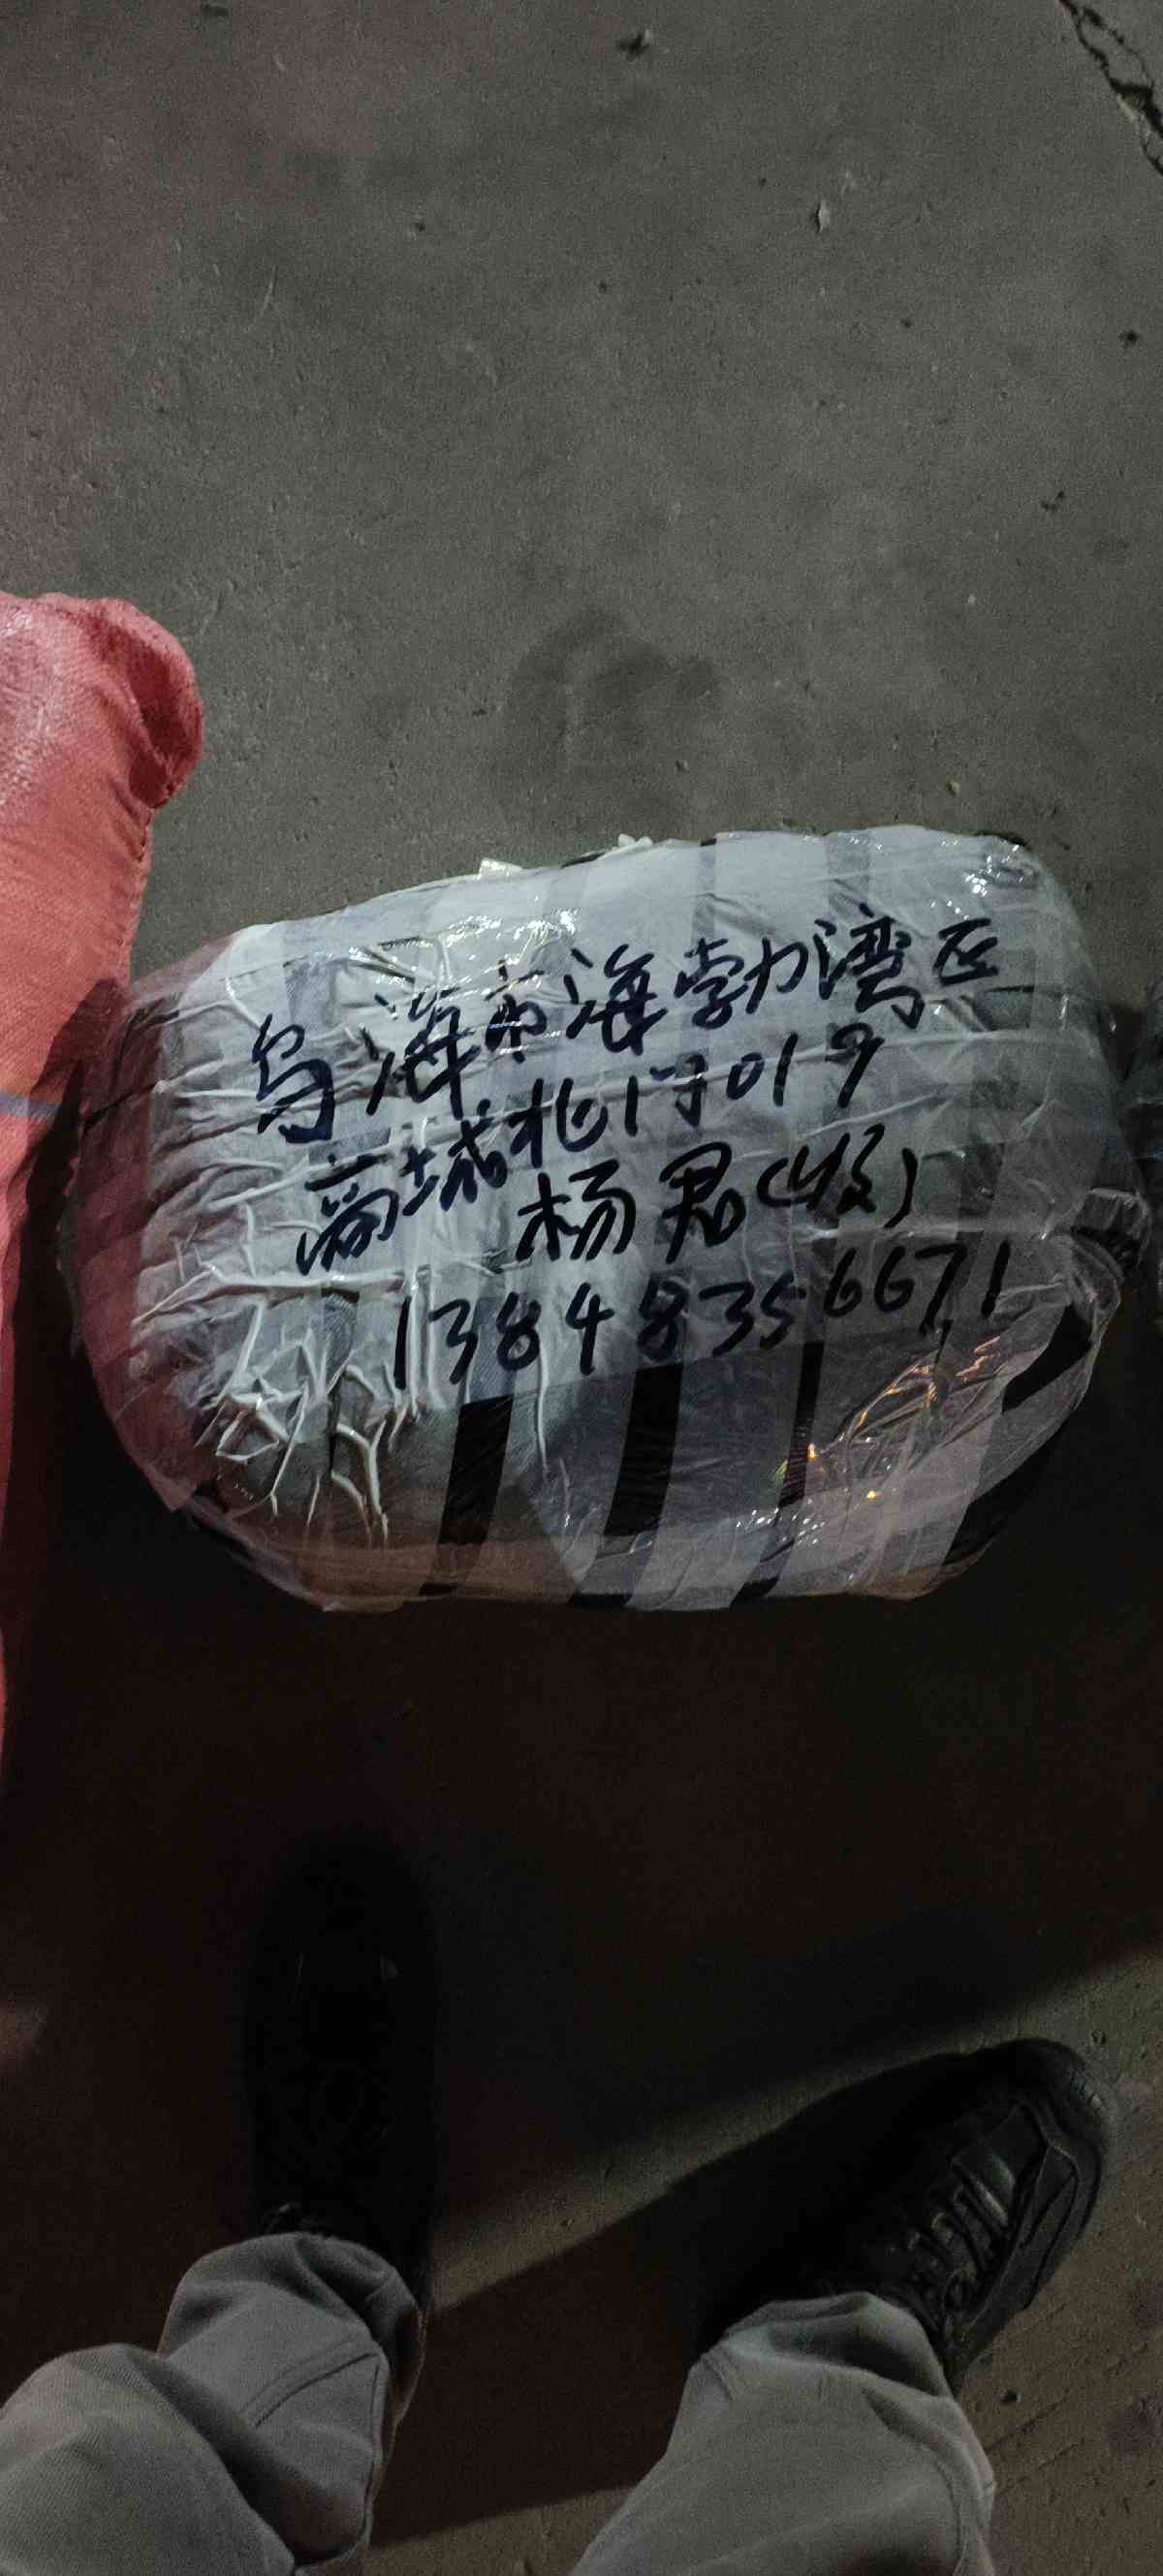 乌海市海勃湾区
商城北门019
杨君(收)
13848356671